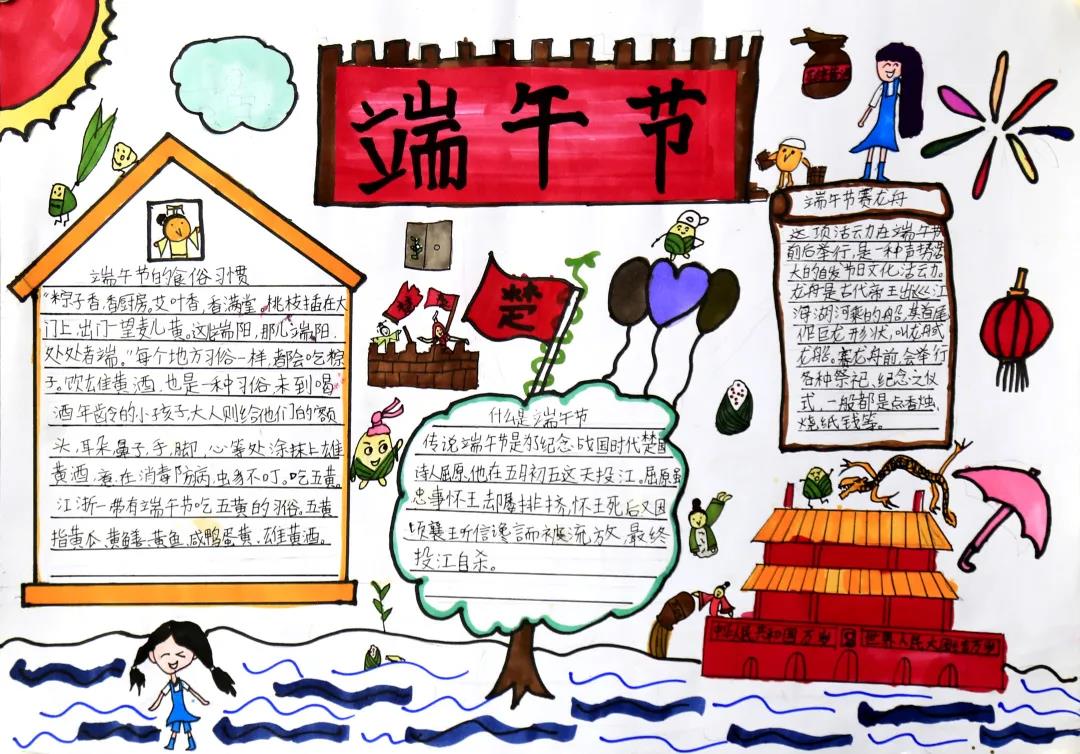 端午节
端午节的食俗习惯
“粽子香,香厨房。艾叶香,香满堂。桃枝插在大
门上,出门一望麦儿黄。这儿端阳,那儿端阳,
处处都端。”每个地方习俗一样,都会吃粽
子。饮雄黄酒,也是一种习俗,未到喝
酒年龄的小孩子大人则给他们的额
头,耳朵,鼻子,手,脚,心等处涂抹上雄
黄酒,意在消毒防病,虫豸不叮。吃五黄。
江浙一带有端午节吃五黄的习俗。五黄
指黄瓜、黄鳝、黄鱼、咸鸭蛋黄、雄黄酒。
楚
什么是端午节
传说端午节是为纪念战国时代楚国
诗人屈原,他在五月初五这天投江。屈原虽
忠事怀王却屡排挤,怀王死后又因
顷襄王听信谗言而被流放,最终
投江自杀。
端午节赛龙舟
这项活动在端午节
前后举行,是一种声势浩
大的自发节日文化活动。
龙舟是古代帝王出巡江
海湖河乘的船,其首尾
作巨龙形状,叫龙舟或
龙船。赛龙舟前,会举行
各种祭祀、纪念之仪
式,一般都是点香烛,
烧纸钱等。
中华人民共和国万岁
世界人民大团结万岁